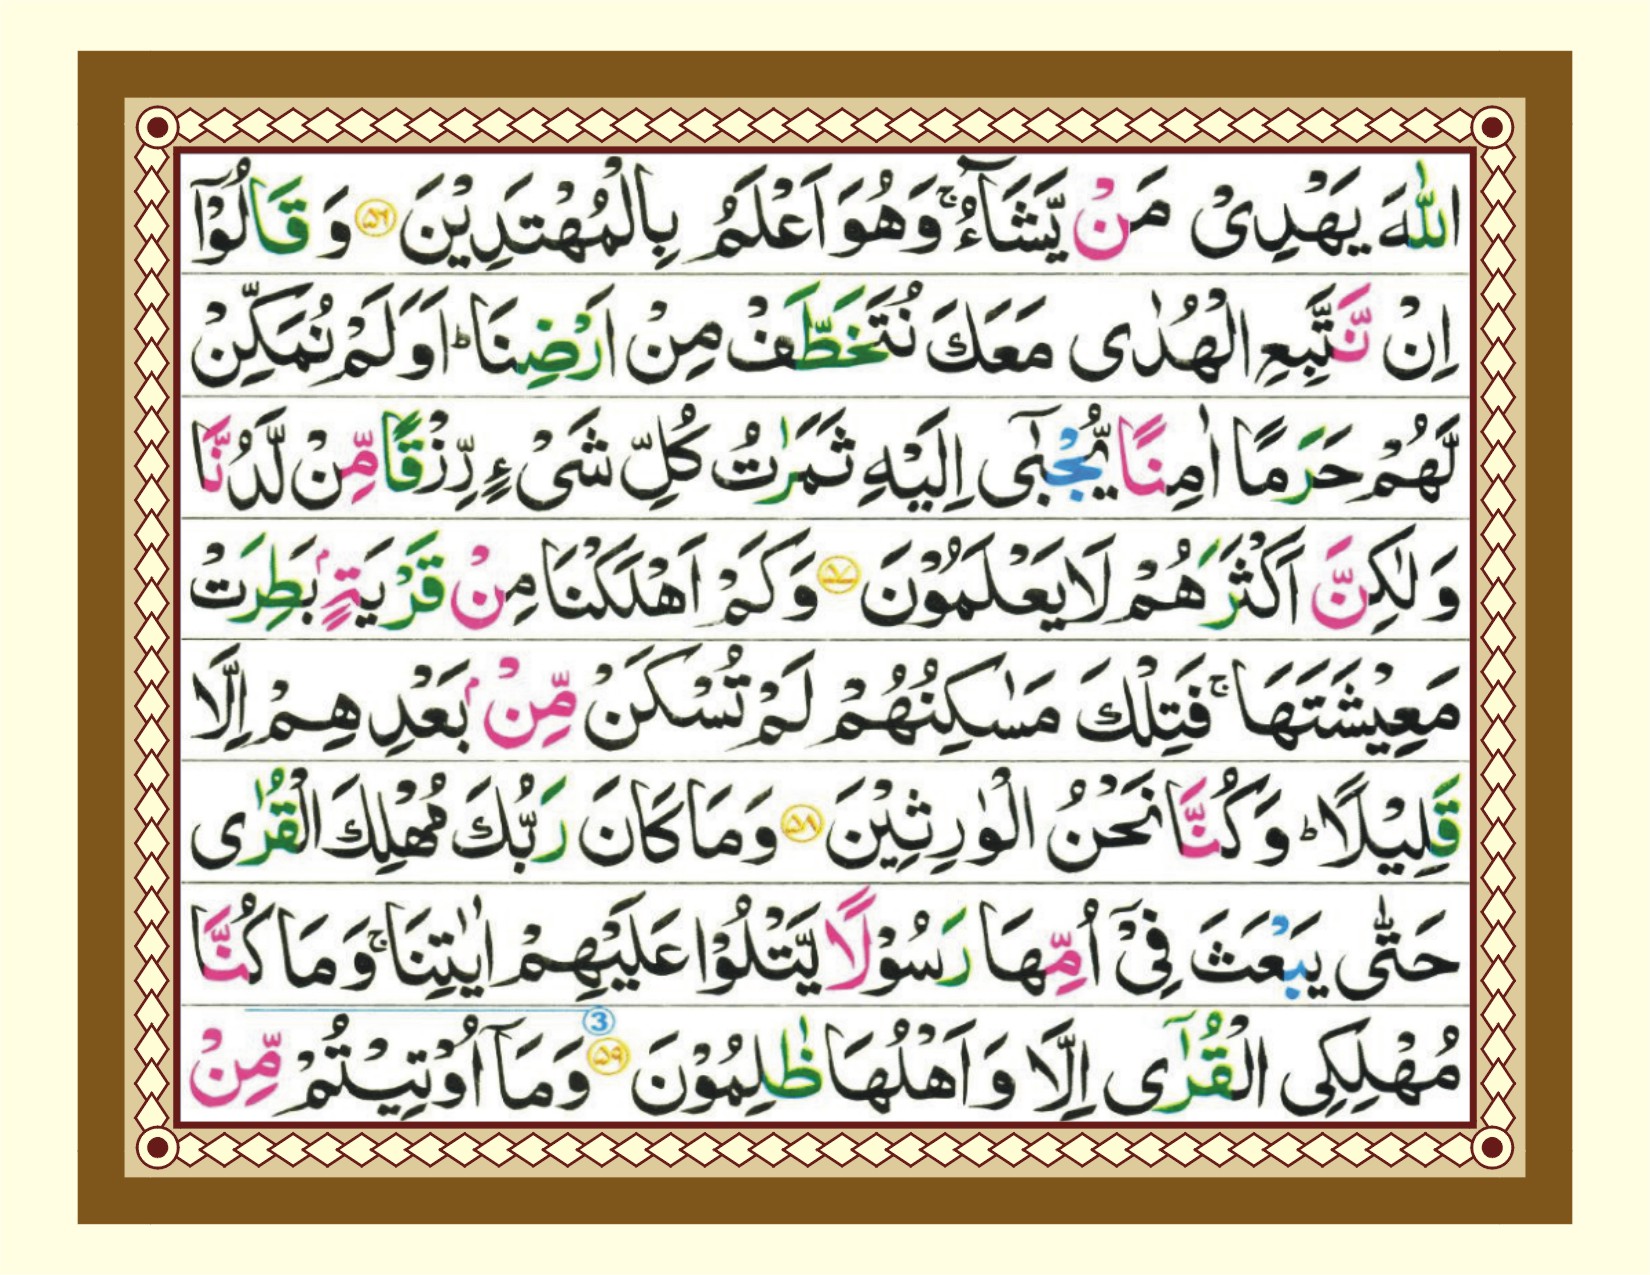 اللّٰهَ يَهْدِىْ مَنْ يَّشَآءُ ۚ وَهُوَ اَعْلَمُ بِالْمُهْتَدِيْنَ ﴿۵۶﴾ وَ قَالُوْۤا
اِنْ نَّتَّبِعِ الْهُدٰى مَعَكَ نُتَخَطَّفْ مِنْ اَرْضِنَا ؕ اَوَلَمْ نُمَكِّنْ
لَّهُمْ حَرَمًا اٰمِنًا يُّجْبٰٓى اِلَيْهِ ثَمَرٰتُ كُلِّ شَىْءٍ رِّزْقًا مِّنْ لَّدُنَّا
وَلٰكِنَّ اَكْثَرَهُمْ لَا يَعْلَمُوْنَ ﴿۵۷﴾ وَكَمْ اَهْلَكْنَا مِنْ قَرْيَةٍۭ بَطِرَتْ
مَعِيْشَتَهَا ۚ فَتِلْكَ مَسٰكِنُهُمْ لَمْ تُسْكَنْ مِّنْۢ بَعْدِهِمْ اِلَّا
قَلِيْلًا ؕ وَكُنَّا نَحْنُ الْوٰرِثِيْنَ ﴿۵۸﴾ وَمَا كَانَ رَبُّكَ مُهْلِكَ الْقُرٰى
حَتّٰى يَبْعَثَ فِىْۤ اُمِّهَا رَسُوْلًا يَّتْلُوْا عَلَيْهِمْ اٰيٰتِنَا ۚ وَمَا كُنَّا
3
مُهْلِكِى الْقُرٰٓى اِلَّا وَاَهْلُهَا ظٰلِمُوْنَ ﴿۵۹﴾ وَمَاۤ اُوْتِيْتُمْ مِّنْ